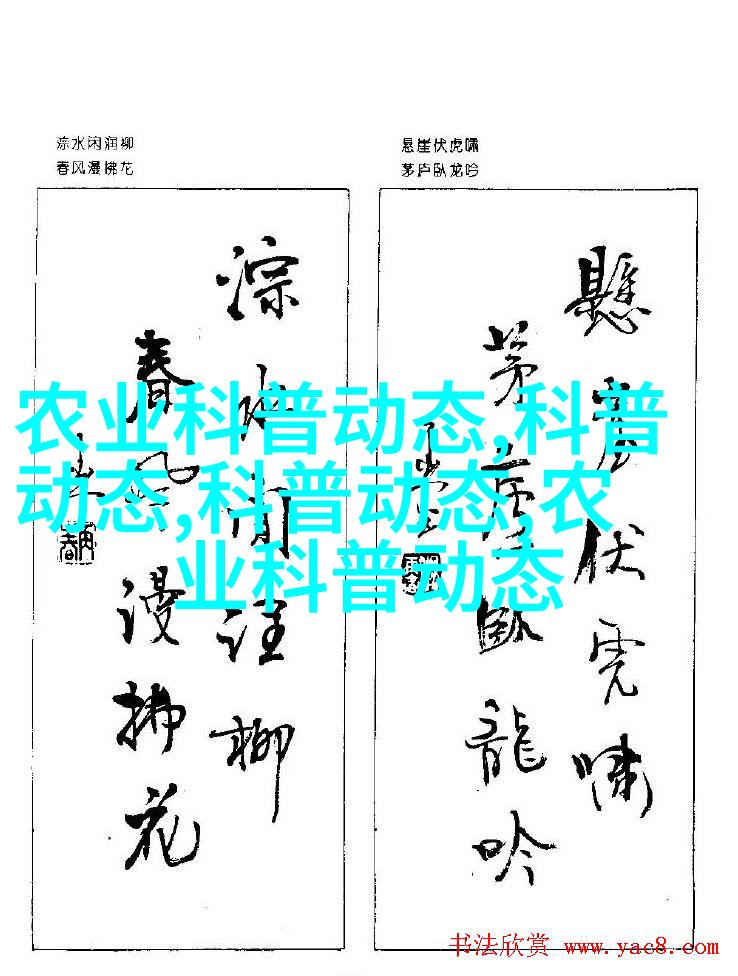 淙水闲润柳
春风漫拂花
悬崖伏虎啸
茅庐卧龙吟
淙水闲润柳
春风漫拂花
懸崖伏虎啸
茅庐臥龍吟
农业科普动态,科普
动态,科普动态,农
业科普动态
书法欣赏 www.yac8.com